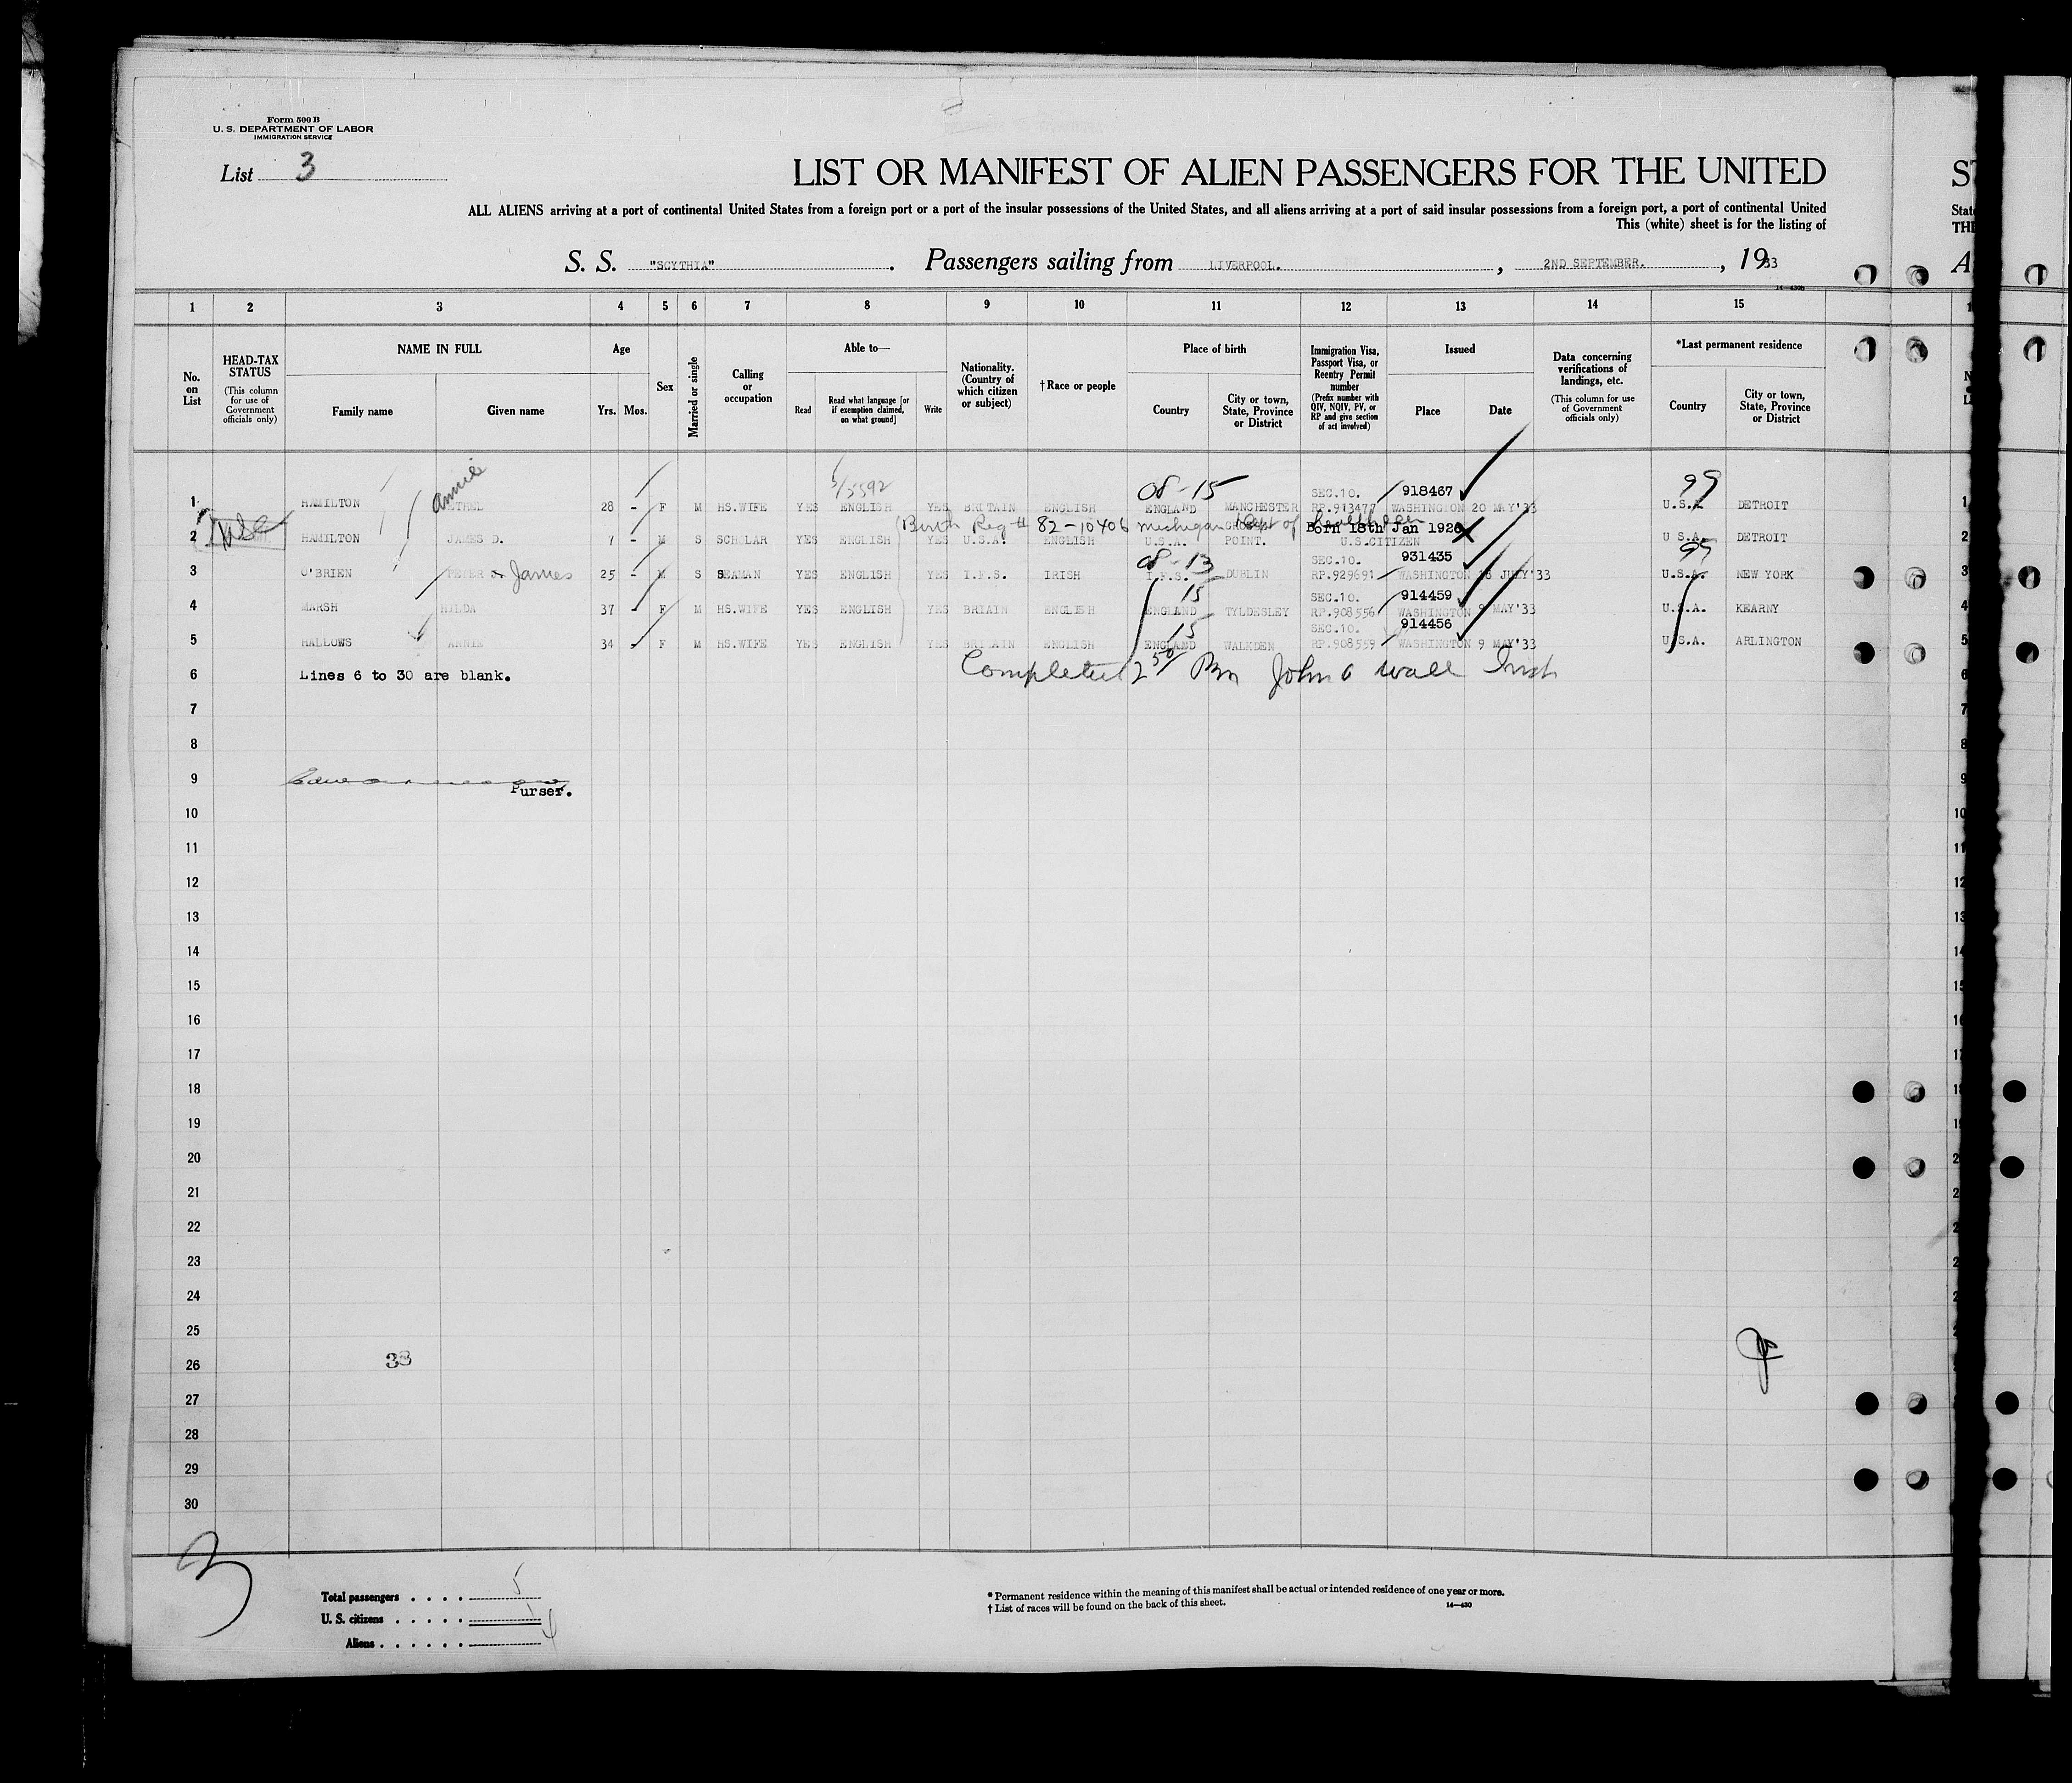 Form 500 B
U. S. DEPARTMENT OF LABOR
IMMIGRATION SERVICE
List 3
LIST OR MANIFEST OF ALIEN PASSENGERS FOR THE UNITED
ALL ALIENS arriving at a port of continental United States from a foreign port or a port of the insular possessions of the United States, and all aliens arriving at a port of said insular possessions from a foreign port, a port of continental United
This (white) sheet is for the listing of
S. S. "SCYTHIA". Passengers sailing from LIVERPOOL., 2ND SEPTEMBER., 1933
1 2 3 4 5 6 7 8 9 10 11 12 13 14 15
No. on List
HEAD-TAX STATUS (This column for use of Government officials only)
NAME IN FULL
Family name
Given name
Age
Yrs. Mos.
Sex
Married or single
Calling or occupation
Able to—
Read
Read what language [or if exemption claimed, on what ground]
Write
Nationality. (Country of which citizen or subject)
† Race or people
Place of birth
Country
City or town, State, Province or District
Immigration Visa, Passport Visa, or Reentry Permit number (Prefix number with QIV, NQIV, PV, or RP and give section of act involved)
Issued
Place
Date
Data concerning verifications of landings, etc. (This column for use of Government officials only)
*Last permanent residence
Country
City or town, State, Province or District
Annie 08-15 SEC.10. 918467 99
1 HAMILTON ETHEL 28 - F M HS.WIFE YES ENGLISH YES BRITAIN ENGLISH ENGLAND MANCHESTER RP.913477 WASHINGTON 20 MAY'33 U.S.A. DETROIT
Birth Reg # 82-10406 Michigan Dept of Born 18th Jan 1926
2 HAMILTON JAMES D. 7 - M S SCHOLAR YES ENGLISH YES U.S.A. ENGLISH U.S.A. POINT. U.S.CITIZEN U.S.A. DETROIT
08-13 SEC.10. 931435
3 O'BRIEN PETER James 25 - M S SEAMAN YES ENGLISH YES I.F.S. IRISH I.F.S. DUBLIN RP.929691 WASHINGTON JULY'33 U.S.A. NEW YORK
15 SEC.10. 914459
4 MARSH HILDA 37 - F M HS.WIFE YES ENGLISH YES BRIAIN ENGLISH ENGLAND TYLDESLEY RP.908556 WASHINGTON 9 MAY'33 U.S.A. KEARNY
15 SEC.10. 914456
5 HALLOWS ANNIE 34 - F M HS.WIFE YES ENGLISH YES BRITAIN ENGLISH ENGLAND WALKDEN RP.908559 WASHINGTON 9 MAY'33 U.S.A. ARLINGTON
6 Lines 6 to 30 are blank. Completed 2 50 Pm John Wall Insp
7
8
9
Purser.
10
11
12
13
14
15
16
17
18
19
20
21
22
23
24
25
26 33
27
28
29
30
3
Total passengers . . . . 5
U. S. citizens . . . . . 1
Aliens . . . . . . 4
* Permanent residence within the meaning of this manifest shall be actual or intended residence of one year or more.
† List of races will be found on the back of this sheet.
14—430